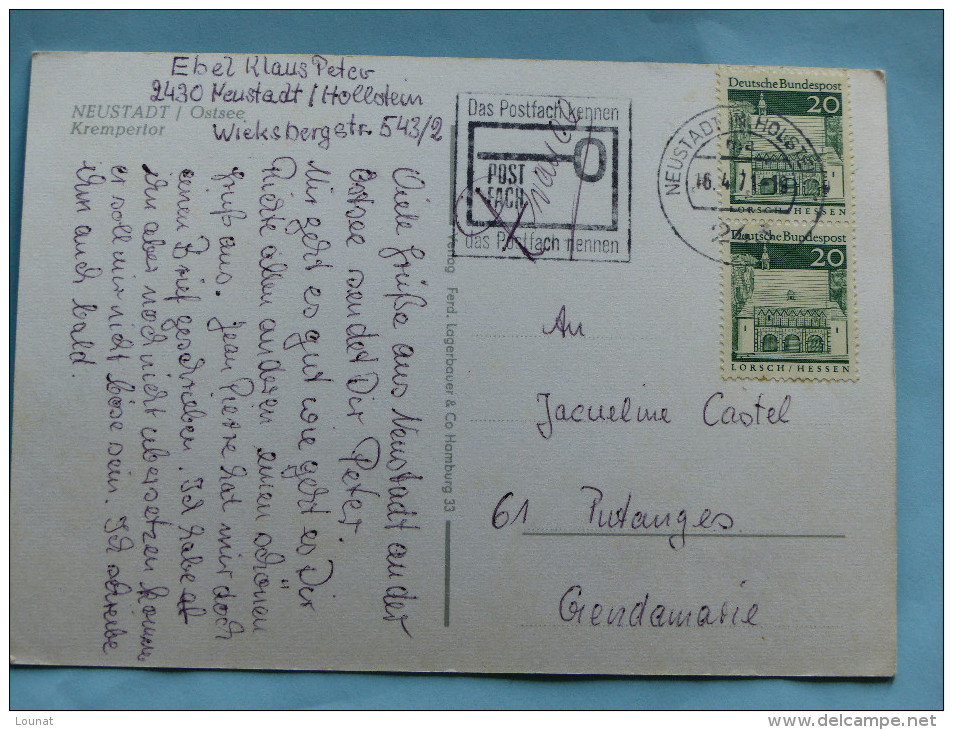 Ebel Klaus Peter
2430 Neustadt / Hollstein
Wieksbergstr. 543/2
NEUSTADT / Ostsee
Krempertor
Viele Grüße aus Neustadt an der
Ostsee sendet Dir Peter.
Mir geht es gut wie geht es Dir
Richte allen anderen einen schönen
Gruß aus. Jean Pierre hat mir doch
einen Brief geschrieben. Ich habe
ihn aber noch nicht übersetzen können
er soll mir nicht böse sein. Ich schreibe
ihm auch bald.
Verlag Ferd. Lagerbauer & Co Hamburg 33
Das Postfach kennen
POST
FACH
das Postfach nennen
NEUSTADT IN HOLST
16.4.71-18
Deutsche Bundespost
20
LORSCH/HESSEN
Deutsche Bundespost
20
LORSCH/HESSEN
An
Jacqueline Castel
61 Putanges
Gendamarie
Lounat
www.delcampe.net